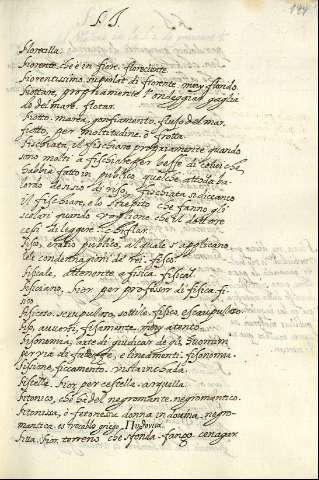 F I.
144
fiorcilla.
fiorente. che è in fiore. floreciente.
fiorentissimo. superlat. di fiorente. muy florido.
fiottare, propriamente l'ondeggiar, paglia
do del mare. flotar.
fiotto. marea, gonfiamento, flusso del mar.
fiotto, per moltitudine. ò frotta.
fischiata, il fischiare propriamente quando
sono molti à fischiar per beffe di colui che,
habbia fatto in publico qualche atto da ba-
lordo, denso di riso, fischiata si dicanco
il fischiare, e lo strepito che fanno gli
scolari quando vogliono che il dottore
cessi di leggere. chiflar.
fisco, erario publico, al quale s'applicano
le condennagioni de' rei. fisco.
fisicale, attenente a fisica. fisical.
fisiciano, fior. per professor di fisica. fi-
sico.
fisicoso. scrupuloso, sottile. fisico, escrupuloso.
fiso, avverb. fisamente. muy atento.
fisonomia, l'arte di giudicar de gli huomini
per via di fattezze, e lineamenti. fisonomia.
fissione, ficcamento. hincada.
fistella. fior. per cestella. arquilla.
fitonico, che ha del negromante. negromantico.
fitonissa, ò feronessa donna indovina. negro-
mantica. es vocablo griego.
fitta, fior. terreno che sfonda. fango. cenagar